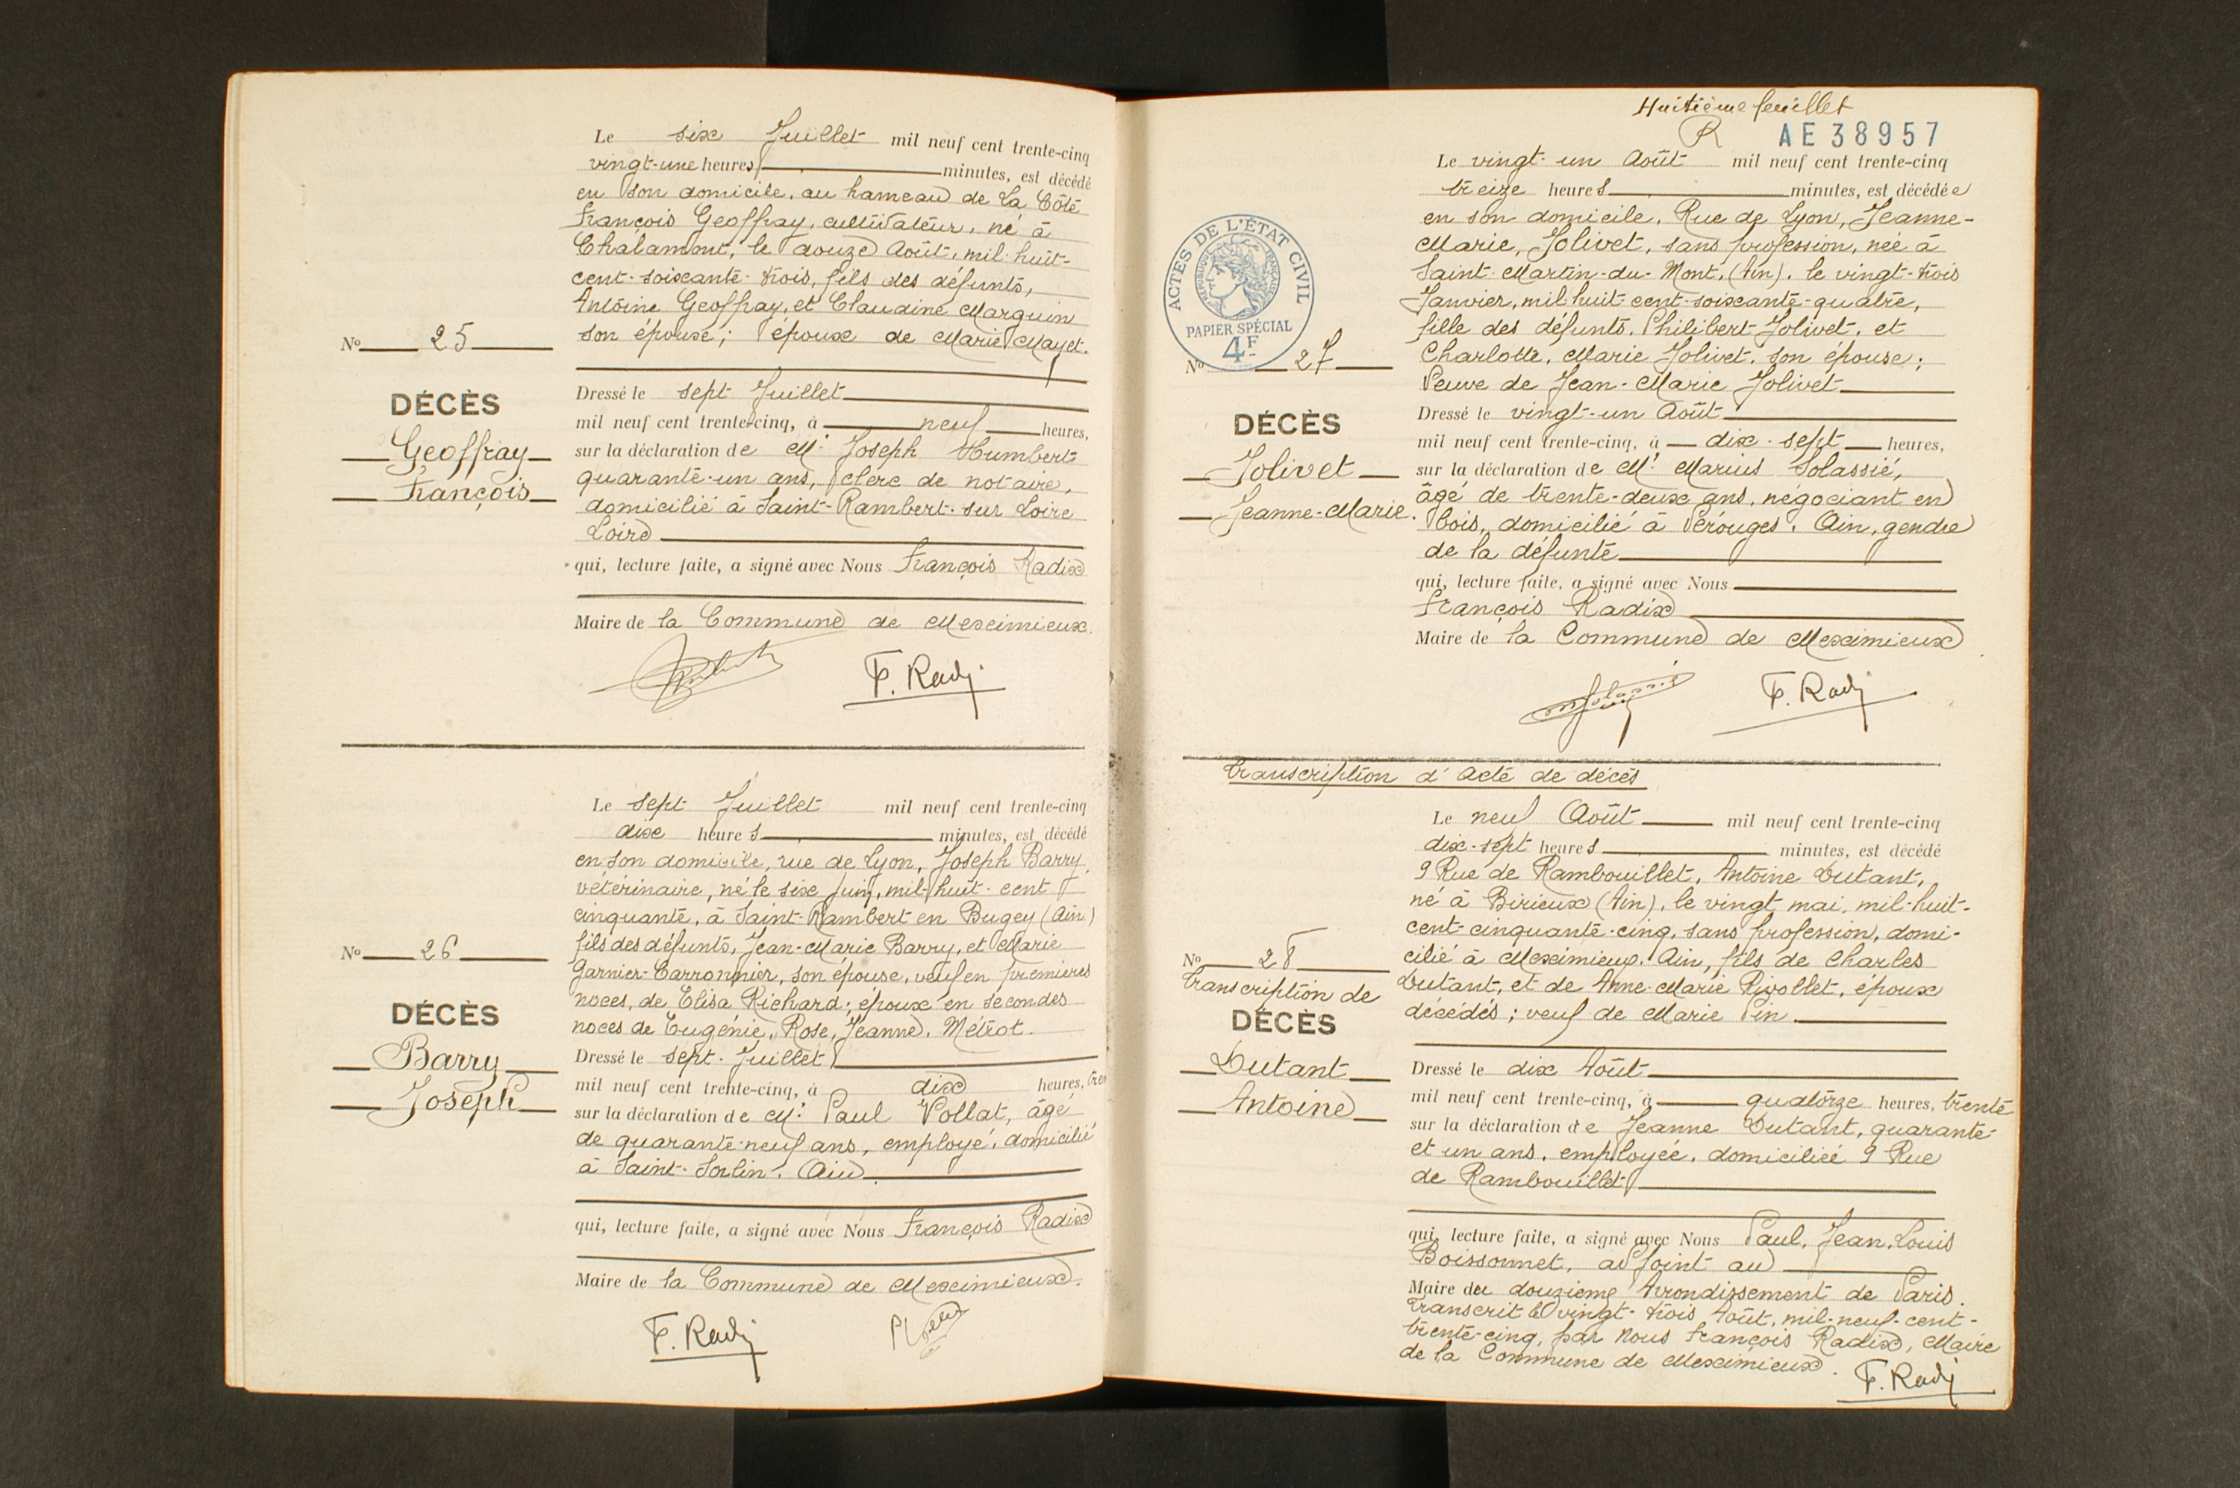 Le six Juillet mil neuf cent trente-cinq
vingt-une heures minutes, est décédé
en son domicile, au hameau de La Côte
François Geoffray, cultivateur, né à
Chalamont, le douze Août, mil-huit-
cent-soixante-trois, fils des défunts,
Antoine Geoffray, et Claudine Marguin
son épouse; époux de Marie Mayet.
No 25
DÉCÈS
Geoffray
François
Dressé le sept Juillet
mil neuf cent trente-cinq, à neuf heures,
sur la déclaration de Mr Joseph Humbert
quarante-un ans, clerc de notaire,
domicilié à Saint-Rambert-sur Loire
Loire
qui, lecture faite, a signé avec Nous François Radix
Maire de la Commune de Meximieux.
F. Radix
Le sept Juillet mil neuf cent trente-cinq
dix heures minutes, est décédé
en son domicile, rue de Lyon, Joseph Barry,
vétérinaire, né le six juin, mil-huit-cent
cinquante, à Saint-Rambert en Bugey (Ain)
fils des défunts, Jean-Marie Barry, et Marie
Garnier-Carronnier, son épouse, veuf en premières
noces, de Elisa Richard; époux en secondes
noces de Eugénie, Rose, Jeanne, Métrot.
No 26
DÉCÈS
Barry
Joseph
Dressé le sept-Juillet
mil neuf cent trente-cinq, à dix heures,
sur la déclaration de Mr Paul Vollat, âgé
de quarante-neuf ans, employé, domicilié
à Saint-Sorlin. Ain.
qui, lecture faite, a signé avec Nous François Radix
Maire de la Commune de Meximieux.
F. Radix
Huitième feuillet
R AE 38957
ACTES DE L'ÉTAT CIVIL
RÉPUBLIQUE FRANÇAISE
PAPIER SPÉCIAL
4F
Le vingt-un Août mil neuf cent trente-cinq
treize heures minutes, est décédée
en son domicile, Rue de Lyon, Jeanne-
Marie, Jolivet, sans profession, née à
Saint-Martin-du-Mont, (Ain), le vingt-trois
Janvier, mil huit-cent-soixante-quatre,
fille des défunts, Philibert Jolivet, et
Charlotte, Marie Jolivet, son épouse;
Veuve de Jean-Marie Jolivet
No 27
DÉCÈS
Jolivet
Jeanne-Marie.
Dressé le vingt-un Août
mil neuf cent trente-cinq, à dix-sept heures,
sur la déclaration de Mr Marius Solassié,
âgé de trente-deux ans, négociant en
bois, domicilié à Pérouges, Ain, gendre
de la défunte
qui, lecture faite, a signé avec Nous
François Radix
Maire de la Commune de Meximieux
F. Radix
Transcription d'Acte de décès
Le neuf Août mil neuf cent trente-cinq
dix-sept heures minutes, est décédé
9 Rue de Rambouillet, Antoine Dutant,
né à Birieux (Ain), le vingt mai, mil-huit-
cent-cinquante-cinq, sans profession, domi-
cilié à Meximieux, Ain, fils de Charles
Dutant, et de Anne-Marie Rivollet, époux
décédés; veuf de Marie Pin.
No 28
Transcription de
DÉCÈS
Dutant
Antoine
Dressé le dix Août
mil neuf cent trente-cinq, à quatorze heures, trente
sur la déclaration de Jeanne Dutant, quarante-
et un ans, employée, domiciliée 9 Rue
de Rambouillet
qui, lecture faite, a signé avec Nous Paul, Jean, Louis
Boissonnet, adjoint au
Maire du douzième Arrondissement de Paris.
Transcrit le vingt-trois Août, mil-neuf-cent-
trente-cinq, par Nous François Radix, Maire
de la Commune de Meximieux.
F. Radix